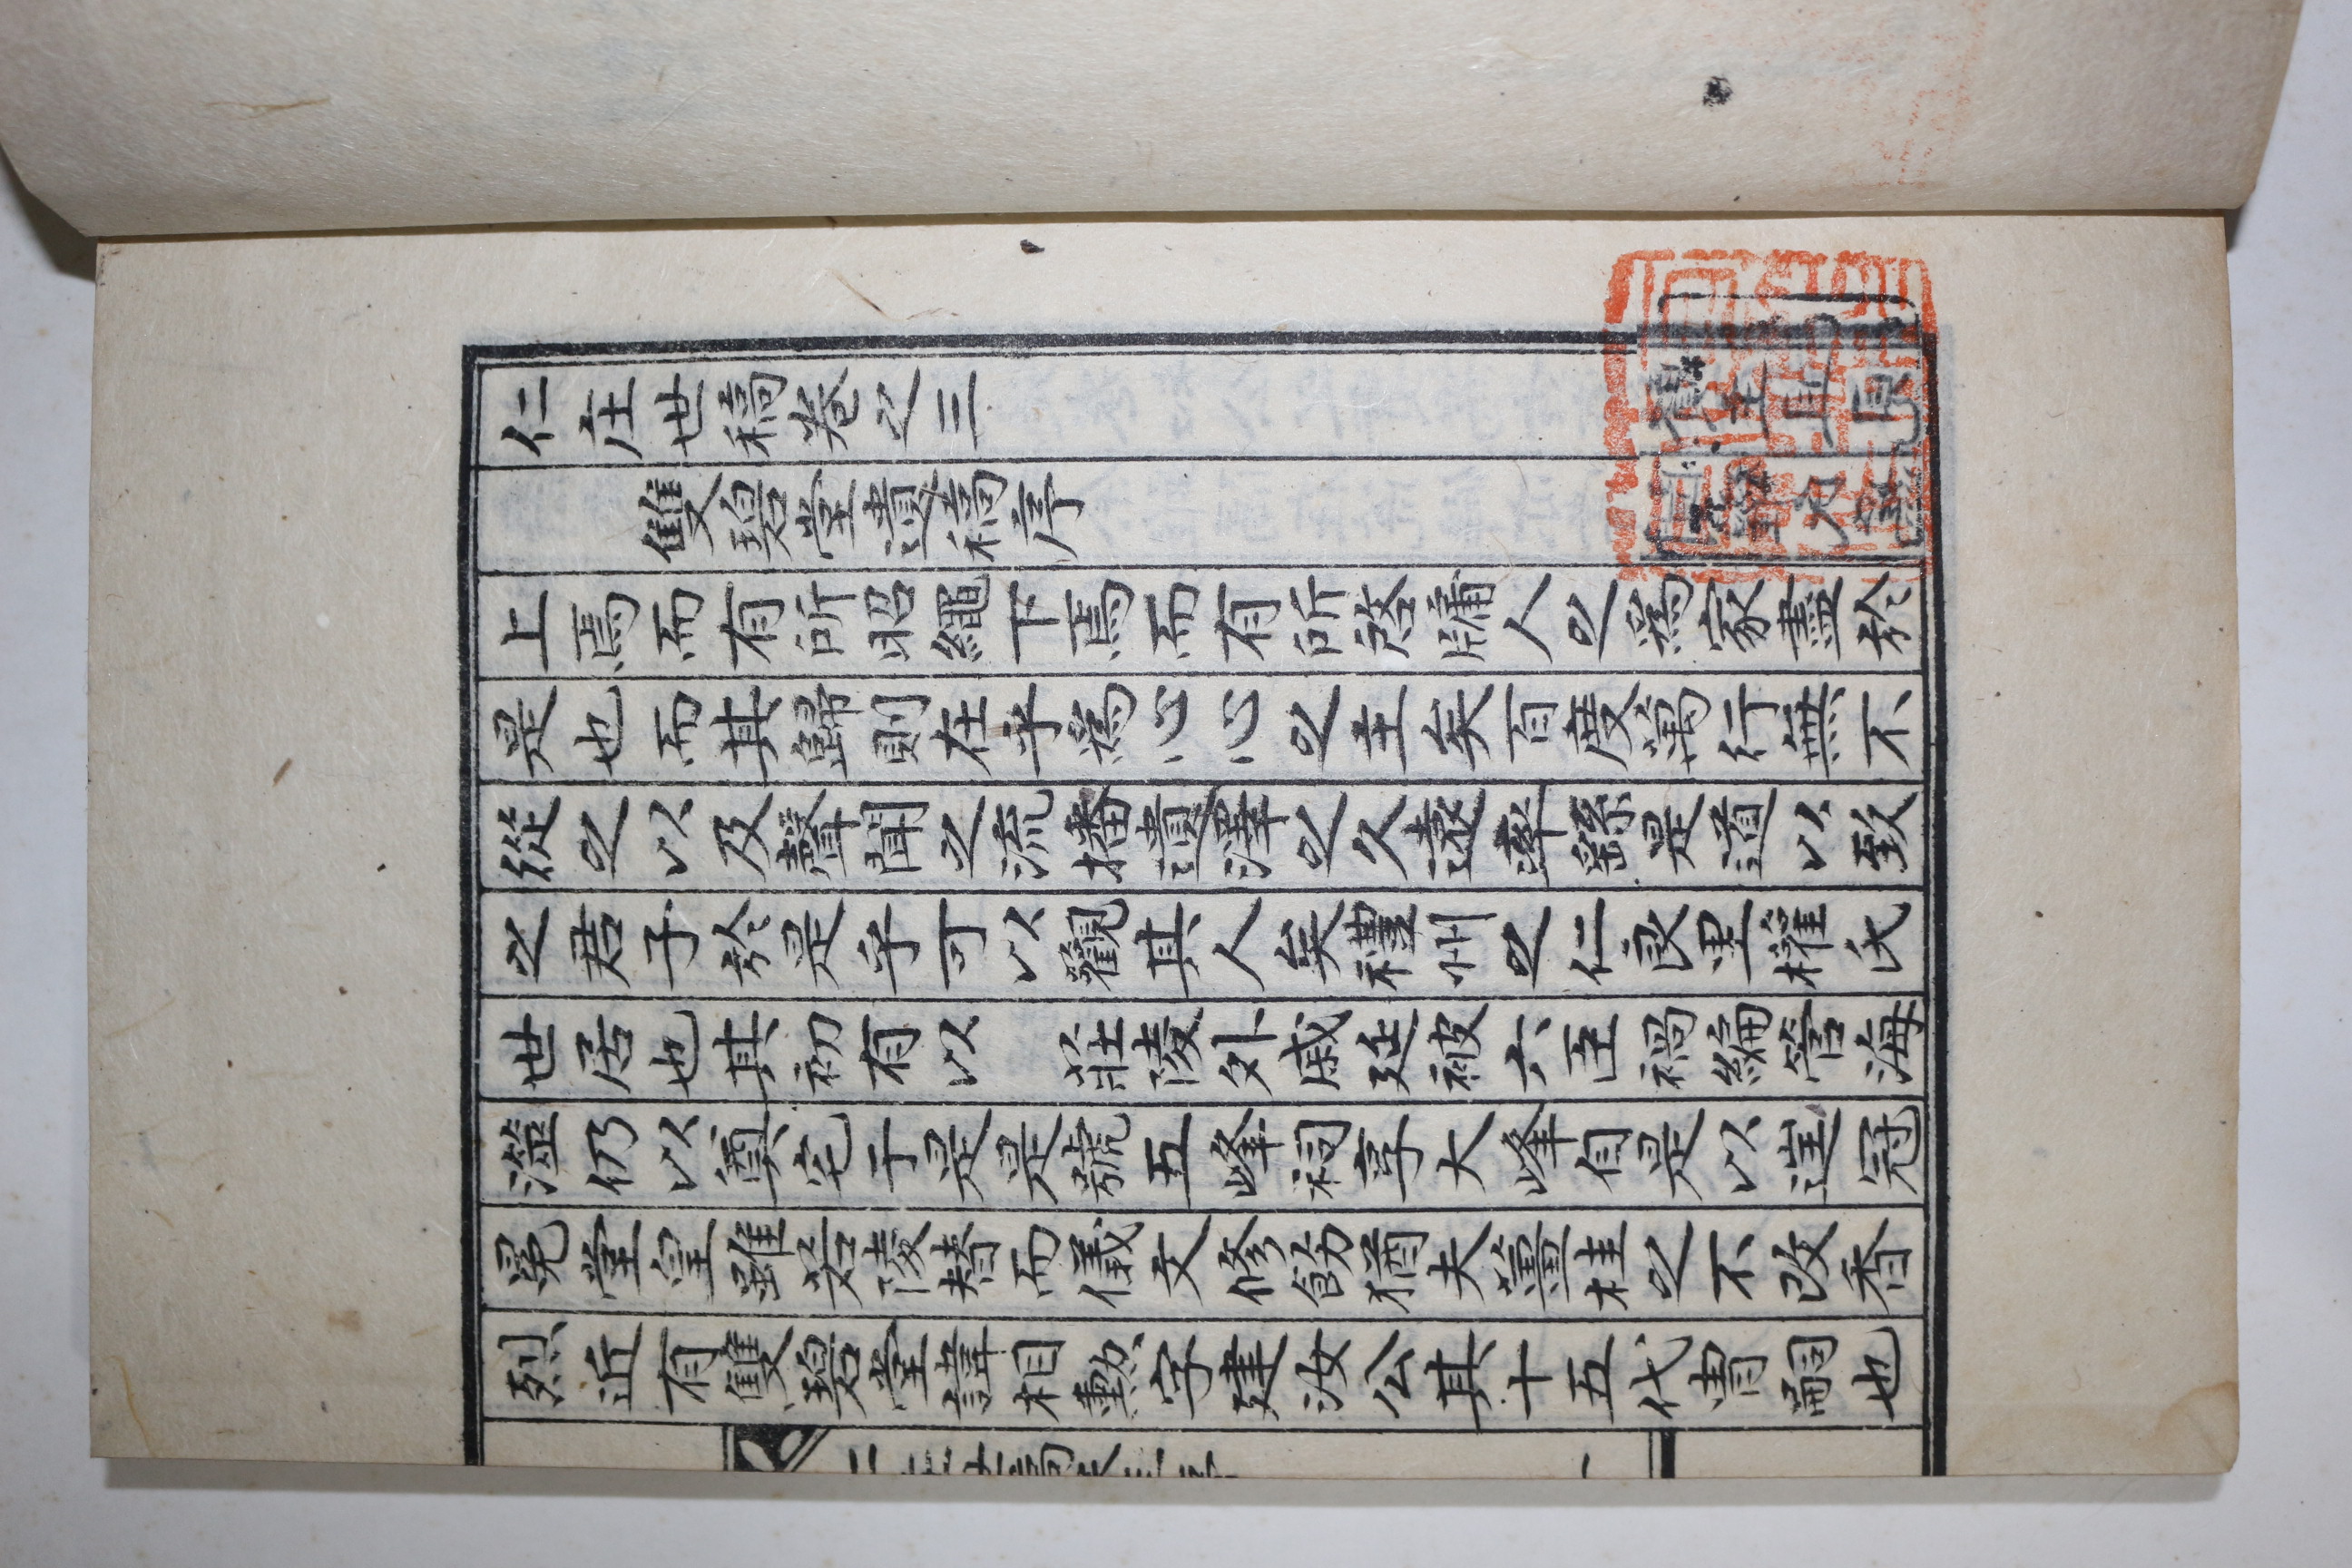 仁庄世稿卷之三
雙碧堂遺稿序
上焉而有所昭繩下焉而有所啓牖人之爲家盡於
是也而其歸則在乎爲心心之主矣百度萬行無不
從之以及聲聞之流播遺澤之久遠率繇是道以致
之君子於是乎可以觀其人矣禮州之仁良里權氏
世居也其初有以 莊陵外戚延被六臣禍編管海
澨仍以奠宅于是是號五峰祠享大峰自是以𨓹冠
冕堂皇雖若陵替而儀文修飭猶夫薑桂之不改香
烈近有雙碧堂諱相勳字建汝公其十五代胄嗣也